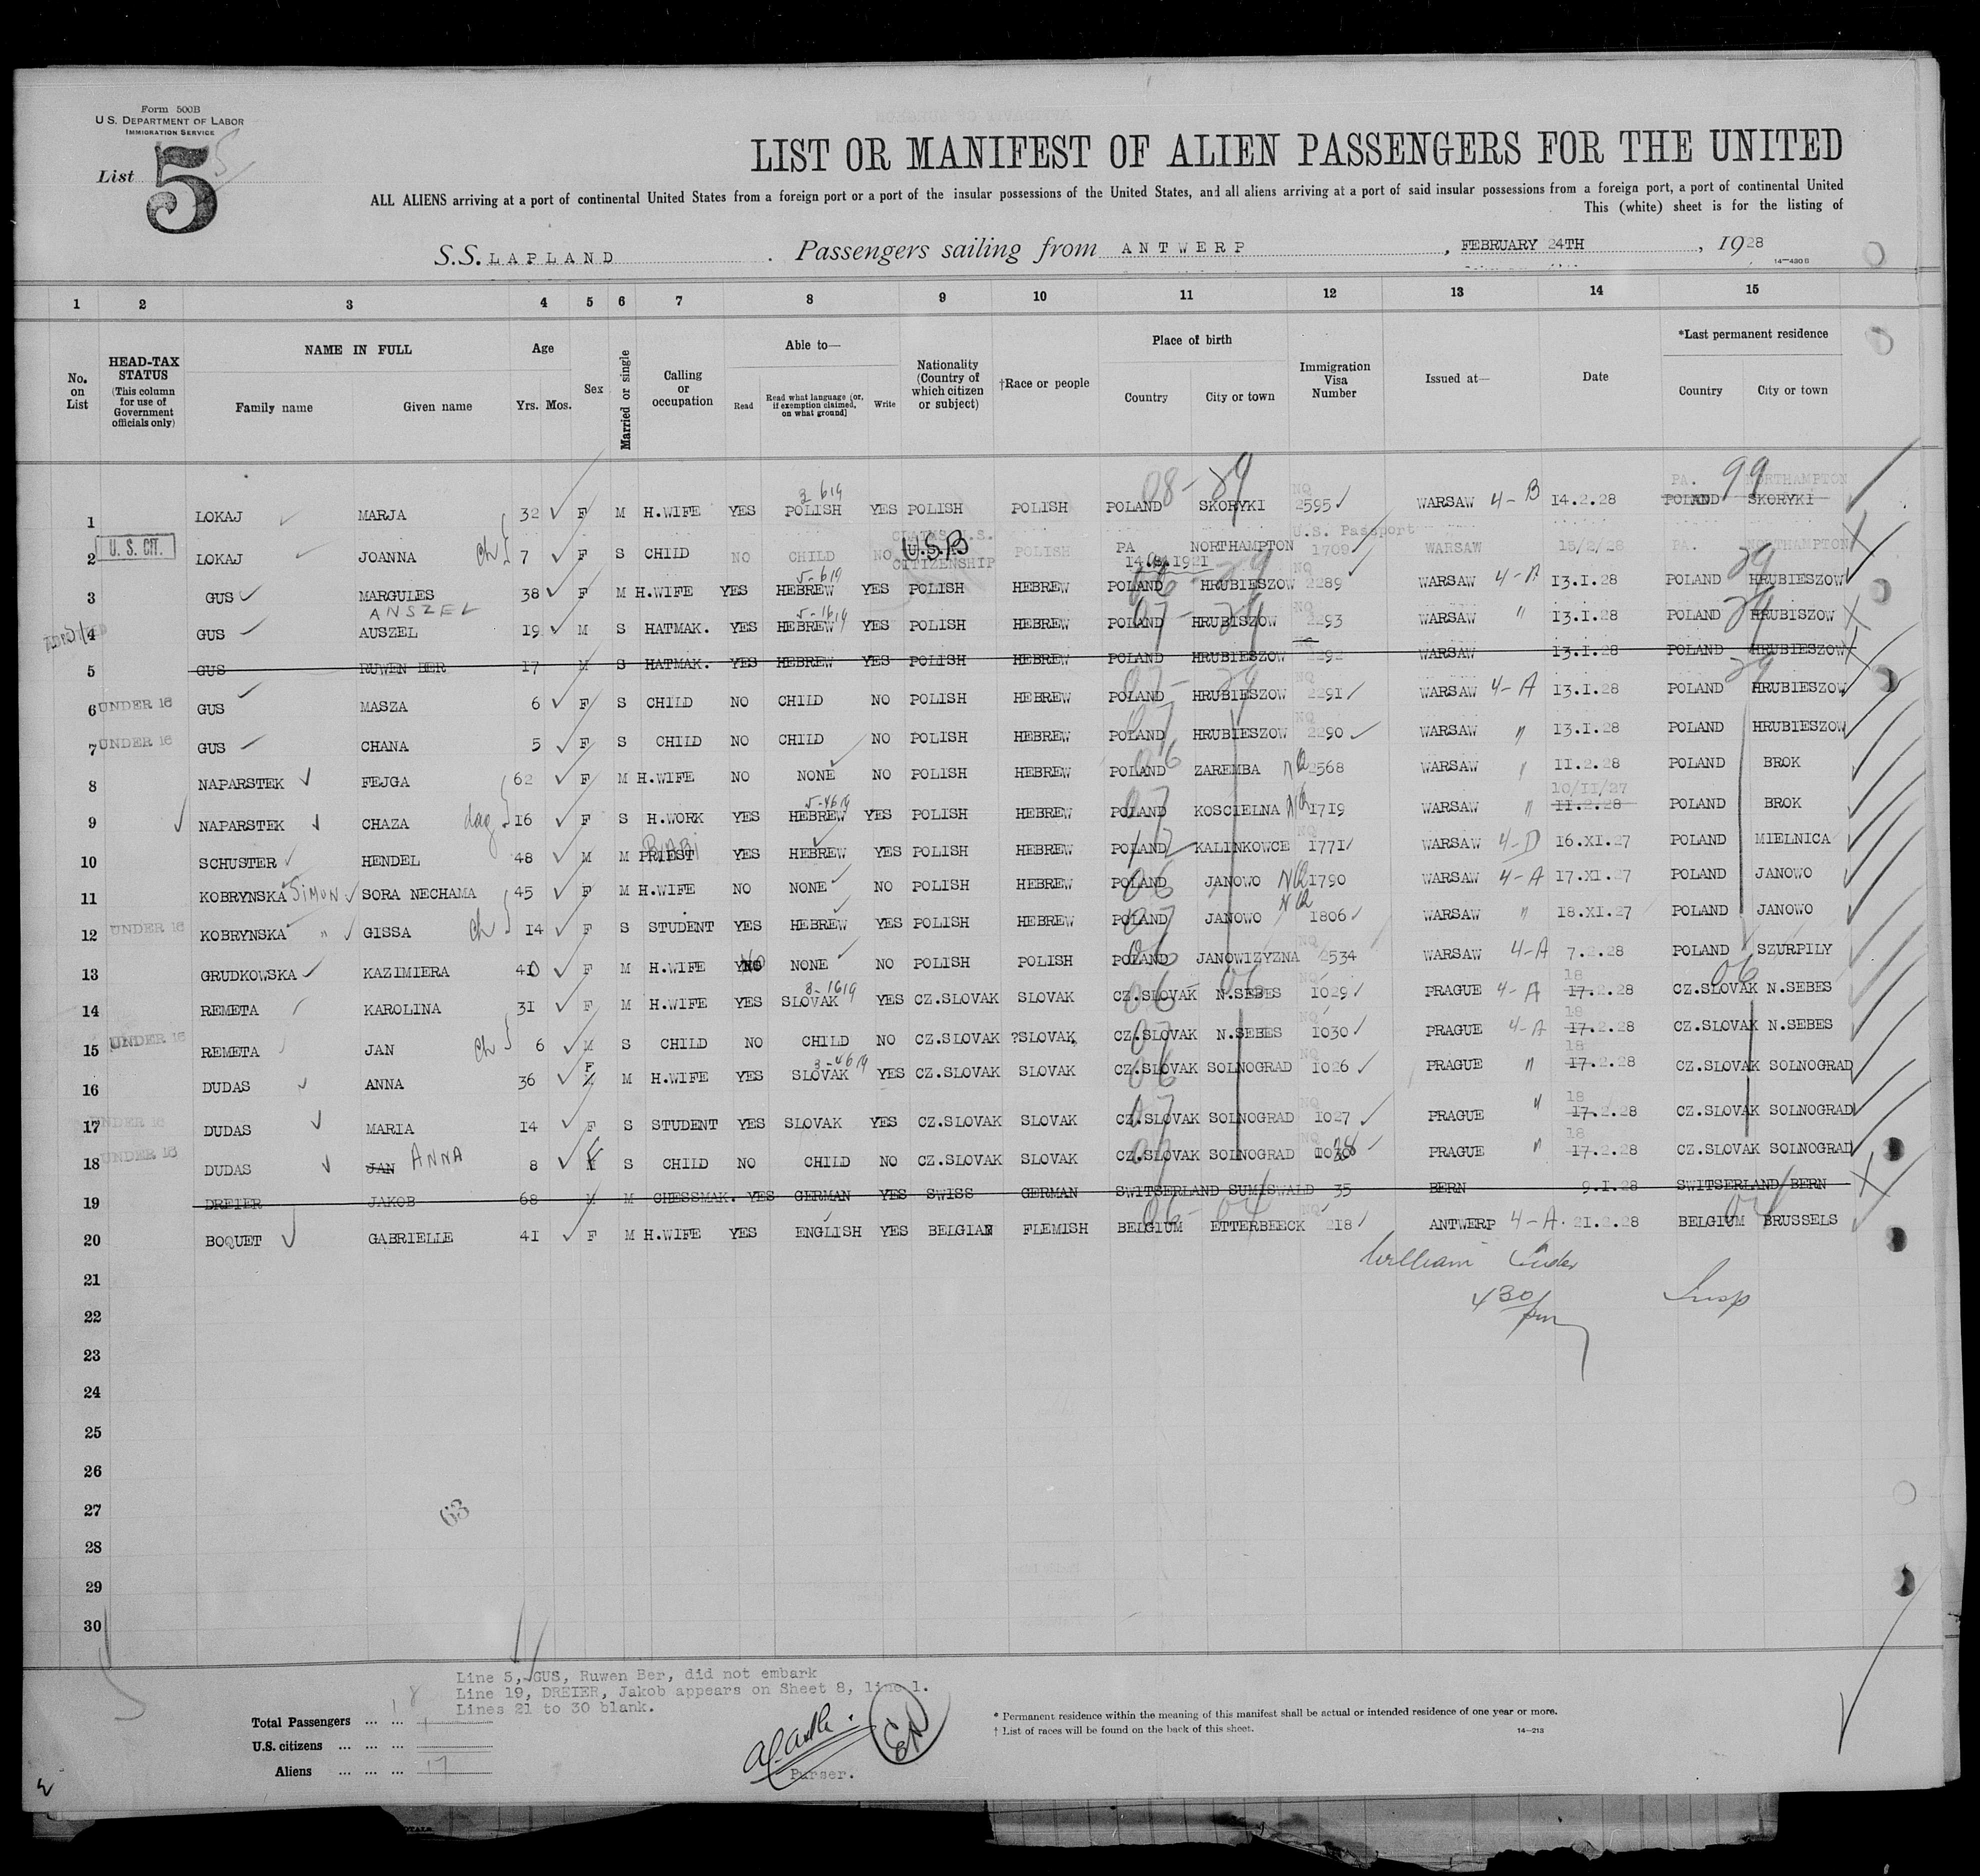 Form 500B
U. S. DEPARTMENT OF LABOR
IMMIGRATION SERVICE
List 5
LIST OR MANIFEST OF ALIEN PASSENGERS FOR THE UNITED
ALL ALIENS arriving at a port of continental United States from a foreign port or a port of the insular possessions of the United States, and all aliens arriving at a port of said insular possessions from a foreign port, a port of continental United
This (white) sheet is for the listing of
S.S. LAPLAND . Passengers sailing from ANTWERP , FEBRUARY 24TH , 1928
14—430 B
1 2 3 4 5 6 7 8 9 10 11 12 13 14 15
No. on List
HEAD-TAX STATUS (This column for use of Government officials only)
NAME IN FULL
Family name Given name
Age
Yrs. Mos.
Sex
Married or single
Calling or occupation
Able to—
Read Read what language (or, if exemption claimed, on what ground) Write
Nationality (Country of which citizen or subject)
†Race or people
Place of birth
Country City or town
Immigration Visa Number
Issued at—
Date
*Last permanent residence
Country City or town
08-29 99
PA. NORTHAMPTON
1 LOKAJ MARJA 32 F M H.WIFE YES POLISH YES POLISH POLISH POLAND SKORYKI NQ 2595 WARSAW 4-B 14.2.28 POLAND SKORYKI
2 U. S. CIT. LOKAJ JOANNA ch 7 F S CHILD NO CHILD NO CLAIMS U.S. CITIZENSHIP U.S.B POLISH PA NORTHAMPTON 14.8.1921 U.S. Passport 1709 WARSAW 15/2/28 PA. NORTHAMPTON
3 GUS MARGULES 38 F M H.WIFE YES HEBREW YES POLISH HEBREW POLAND HRUBIESZOW NQ 2289 WARSAW 4-A 13.I.28 POLAND HRUBIESZOW
4 GUS ANSZEL AUSZEL 19 M S HATMAK. YES HEBREW YES POLISH HEBREW POLAND HRUBISZOW NQ 2293 WARSAW " 13.I.28 POLAND HRUBISZOW
5 GUS RUWEN BER 17 M S HATMAK. YES HEBREW YES POLISH HEBREW POLAND HRUBIESZOW NQ 2292 WARSAW 13.I.28 POLAND HRUBIESZOW
6 UNDER 16 GUS MASZA 6 F S CHILD NO CHILD NO POLISH HEBREW POLAND HRUBIESZOW NQ 2291 WARSAW 4-A 13.I.28 POLAND HRUBIESZOW
7 UNDER 16 GUS CHANA 5 F S CHILD NO CHILD NO POLISH HEBREW POLAND HRUBIESZOW NQ 2290 WARSAW " 13.I.28 POLAND HRUBIESZOW
8 NAPARSTEK FEJGA 62 F M H.WIFE NO NONE NO POLISH HEBREW POLAND ZAREMBA NQ 2568 WARSAW " 11.2.28 POLAND BROK
9 NAPARSTEK CHAZA dag 16 F S H.WORK YES HEBREW YES POLISH HEBREW POLAND KOSCIELNA NQ 1719 WARSAW " 10/11/27 11.2.28 POLAND BROK
10 SCHUSTER HENDEL 48 M M PRIEST YES HEBREW YES POLISH HEBREW POLAND KALINKOWCE NQ 1771 WARSAW 4-D 16.XI.27 POLAND MIELNICA
11 KOBRYNSKA SIMON SORA NECHAMA 45 F M H.WIFE NO NONE NO POLISH HEBREW POLAND JANOWO NQ 1790 WARSAW 4-A 17.XI.27 POLAND JANOWO
12 UNDER 16 KOBRYNSKA " GISSA ch 14 F S STUDENT YES HEBREW YES POLISH HEBREW POLAND JANOWO NQ 1806 WARSAW " 18.XI.27 POLAND JANOWO
13 GRUDKOWSKA KAZIMIERA 40 F M H.WIFE NO NONE NO POLISH POLISH POLAND JANOWIZYZNA NQ 2534 WARSAW 4-A 7.2.28 POLAND SZURPILY
14 REMETA KAROLINA 31 F M H.WIFE YES SLOVAK YES CZ.SLOVAK SLOVAK CZ.SLOVAK N.SEBES NQ 1029 PRAGUE 4-A 18 17.2.28 CZ.SLOVAK N.SEBES
15 UNDER 16 REMETA JAN ch 6 M S CHILD NO CHILD NO CZ.SLOVAK ?SLOVAK CZ.SLOVAK N.SEBES NQ 1030 PRAGUE 4-A 18 17.2.28 CZ.SLOVAK N.SEBES
16 DUDAS ANNA 36 F M H.WIFE YES SLOVAK YES CZ.SLOVAK SLOVAK CZ.SLOVAK SOLNOGRAD NQ 1026 PRAGUE " 18 17.2.28 CZ.SLOVAK SOLNOGRAD
17 UNDER 16 DUDAS MARIA 14 F S STUDENT YES SLOVAK YES CZ.SLOVAK SLOVAK CZ.SLOVAK SOLNOGRAD NQ 1027 PRAGUE " 18 17.2.28 CZ.SLOVAK SOLNOGRAD
18 UNDER 16 DUDAS JAN ANNA 8 F S CHILD NO CHILD NO CZ.SLOVAK SLOVAK CZ.SLOVAK SOLNOGRAD NQ 1028 PRAGUE " 18 17.2.28 CZ.SLOVAK SOLNOGRAD
19 DREIER JAKOB 68 M M CHESSMAK. YES GERMAN YES SWISS GERMAN SWITSERLAND SUMISWALD 35 BERN 9.I.28 SWITSERLAND BERN
20 BOQUET GABRIELLE 41 F M H.WIFE YES ENGLISH YES BELGIAN FLEMISH BELGIUM ETTERBEECK NQ 218 ANTWERP 4-A. 21.2.28 BELGIUM BRUSSELS
21 William
22 4 30/pm Insp
23
24
25
26
27
28
29
30
63
Line 5, GUS, Ruwen Ber, did not embark
Line 19, DREIER, Jakob appears on Sheet 8, line 1.
Lines 21 to 30 blank.
Total Passengers ... ... 18
U.S. citizens ... ... ... 1
Aliens ... ... ... 17
Purser.
* Permanent residence within the meaning of this manifest shall be actual or intended residence of one year or more.
† List of races will be found on the back of this sheet.
14—213